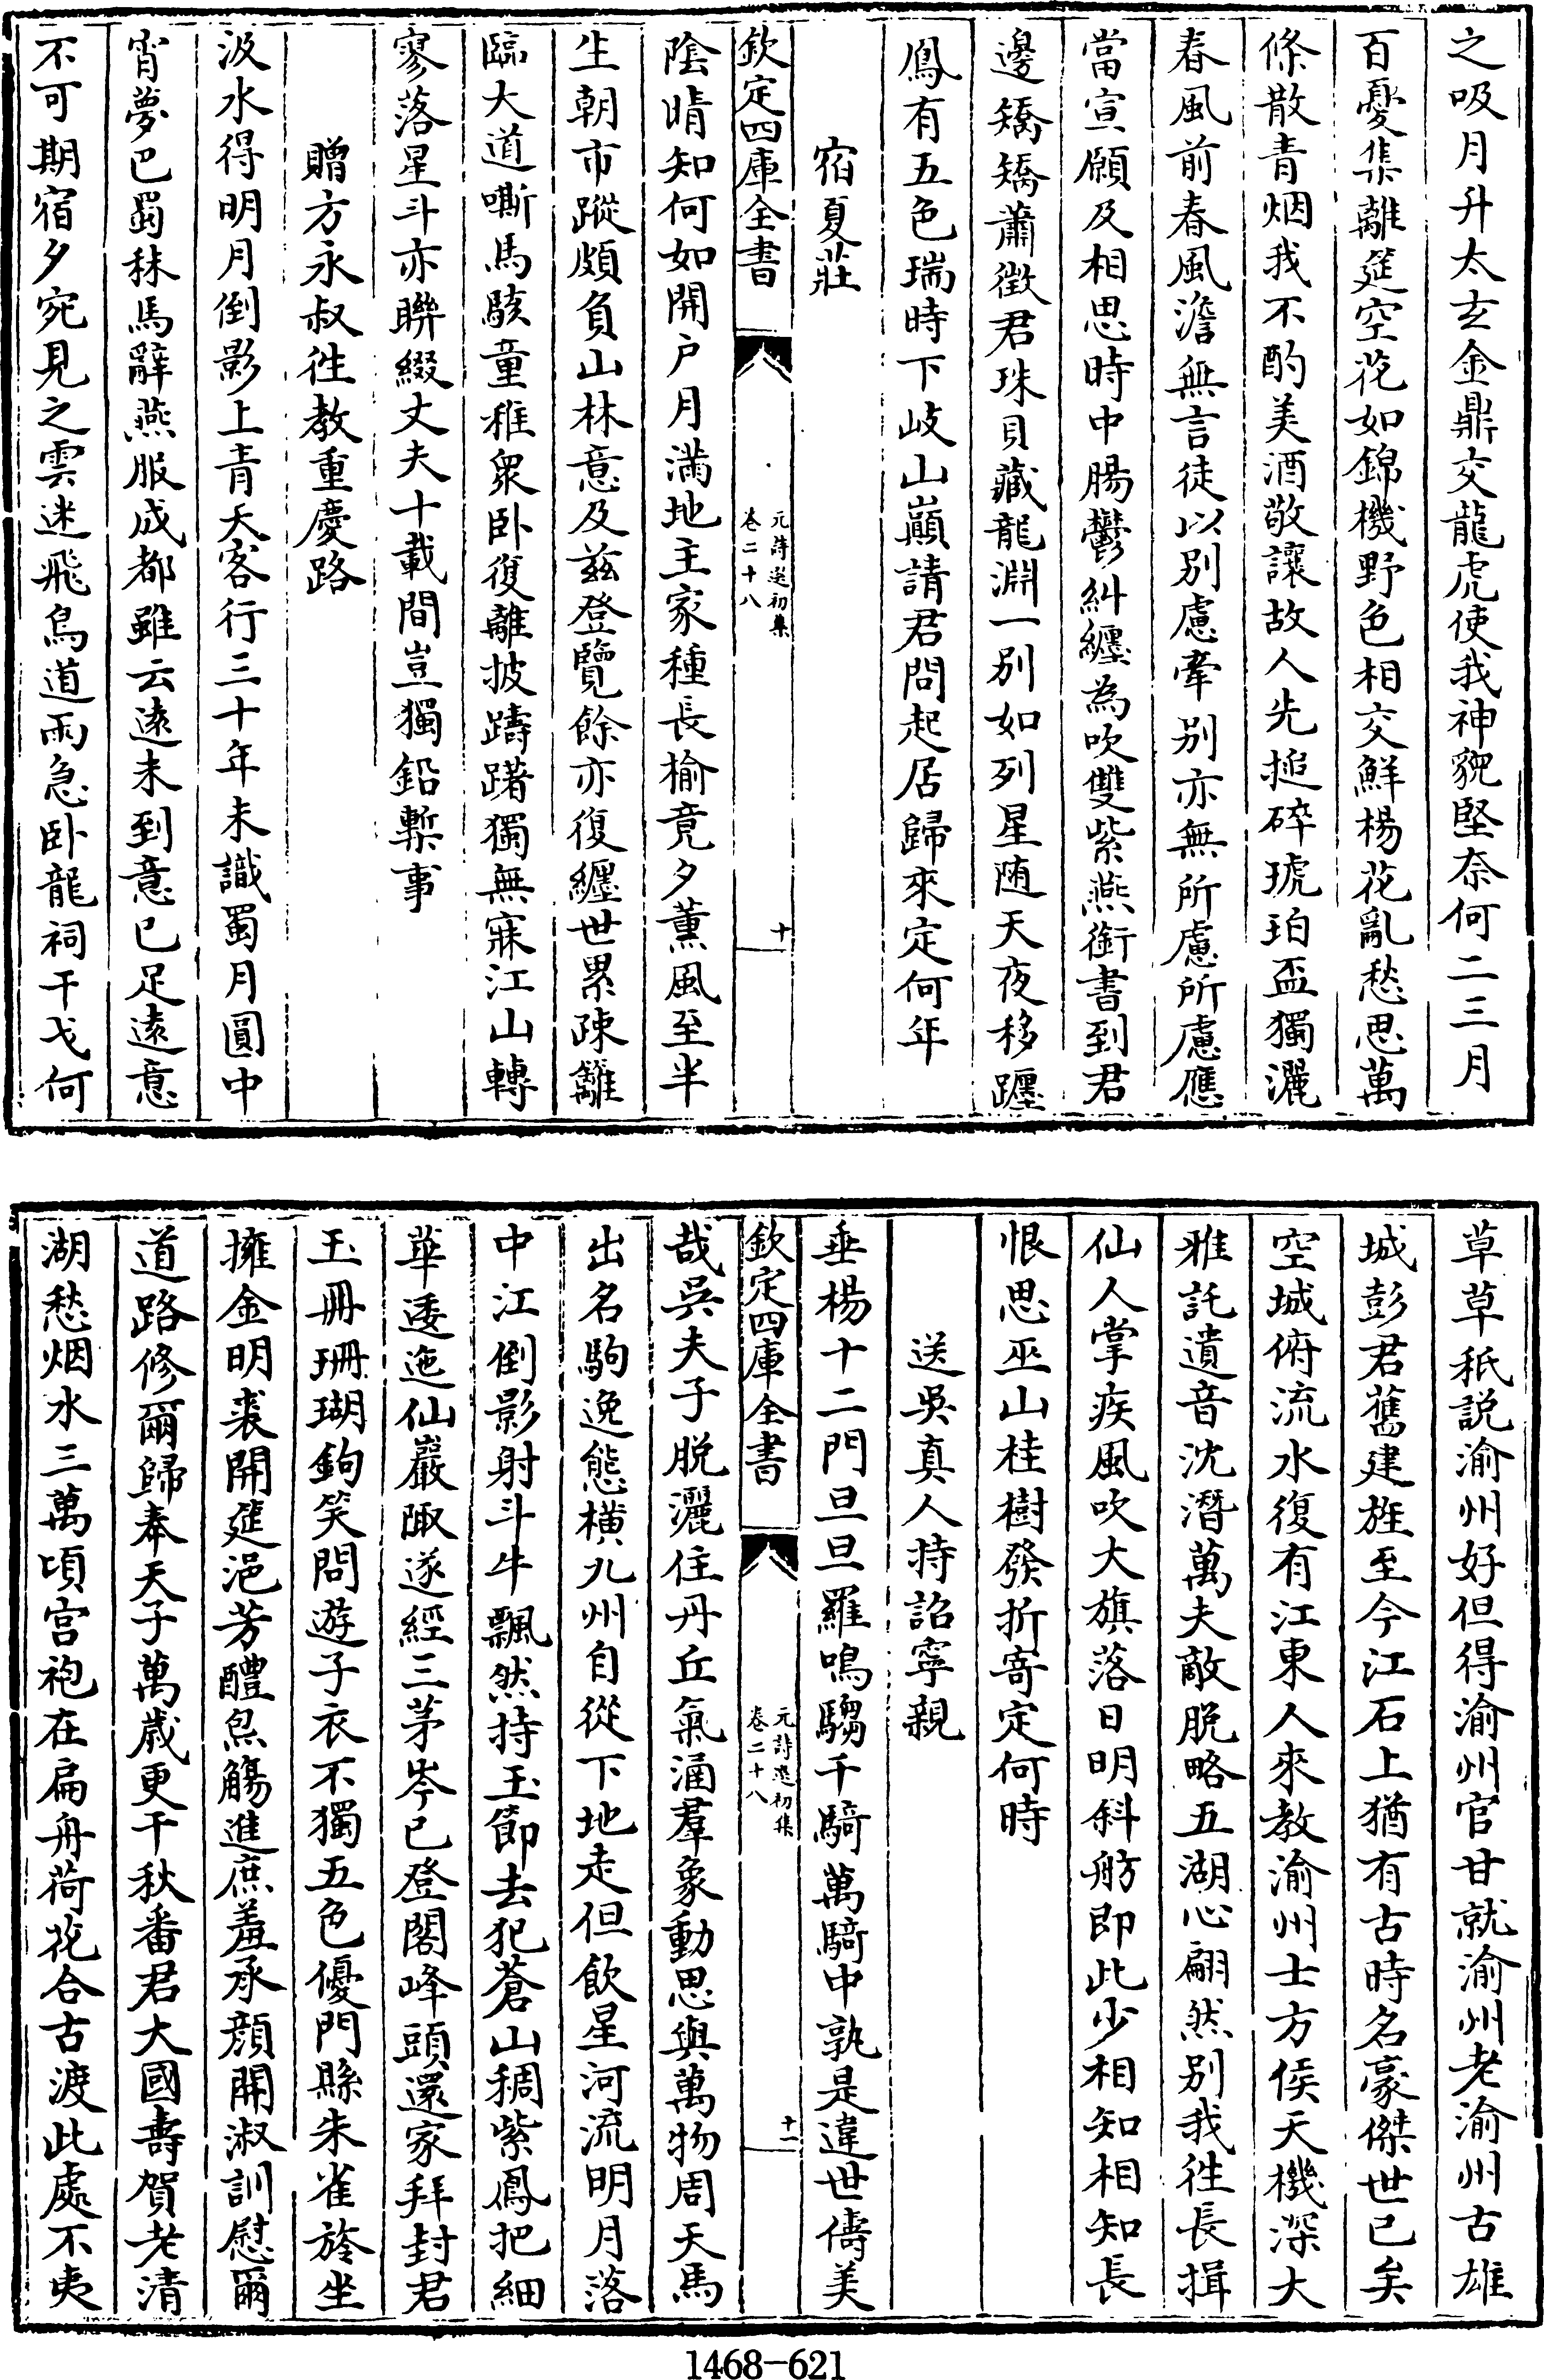 之吸月升太玄金鼎交龍虎使我神貌堅奈何二三月
百憂集離筵空花如錦機野色相交鮮楊花亂愁思萬
條散青烟我不酌美酒敬讓故人先搥碎琥珀盃獨灑
春風前春風澹無言徒以別慮牽別亦無所慮所慮應
當宣願及相思時中腸鬱糾纏為吹雙紫燕銜書到君
邊矯矯蕭徵君珠貝藏龍淵一別如列星随天夜移躔
鳳有五色瑞時下岐山巔請君問起居歸來定何年
宿夏莊
欽定四庫全書
元詩選初集
卷二十八
十
陰晴知何如開户月滿地主家種長榆竟夕薰風至半
生朝市蹤頗負山林意及茲登覽餘亦復纏世累疎籬
臨大道嘶馬駭童稚衆卧復離披躊躇獨無寐江山轉
寥落星斗亦聯綴丈夫十載間豈獨鉛槧事
贈方永叔徃教重慶路
汲水得明月倒影上青天客行三十年未識蜀月圓中
宵夢巴蜀秣馬辭燕服成都雖云遠未到意已足遠意
不可期宿夕宛見之雲迷飛鳥道雨急卧龍祠干戈何
草草秖説渝州好但得渝州官甘就渝州老渝州古雄
城彭君舊建旌至今江石上猶有古時名豪傑世已矣
空城俯流水復有江東人來教渝州士方侯天機深大
雅託遺音沈潛萬夫敵脱略五湖心翩然别我徃長揖
仙人掌疾風吹大旗落日明斜舫即此少相知相知長
恨思巫山桂樹發折寄定何時
送吳真人持詔寧親
垂楊十二門旦旦羅鳴騶千騎萬騎中孰是違世儔美
欽定四庫全書
元詩選初集
卷二十八
十一
哉吳夫子脱灑住丹丘氣涵羣象動思與萬物周天馬
出名駒逸態橫九州自從下地走但飲星河流明月落
中江倒影射斗牛飄然持玉節去犯蒼山稠紫鳳把細
華逶迤仙巖陬遂經三茅岑已登閣峰頭還家拜封君
玉冊珊瑚鉤笑問遊子衣不獨五色優門縣朱雀旂坐
擁金明裘開筵浥芳醴炰觴進庶羞承顔開淑訓慰爾
道路修爾歸奉天子萬歲更千秋番君大國壽賀老清
湖愁烟水三萬頃宫袍在扁舟荷花合古渡此處不夷
1468-621